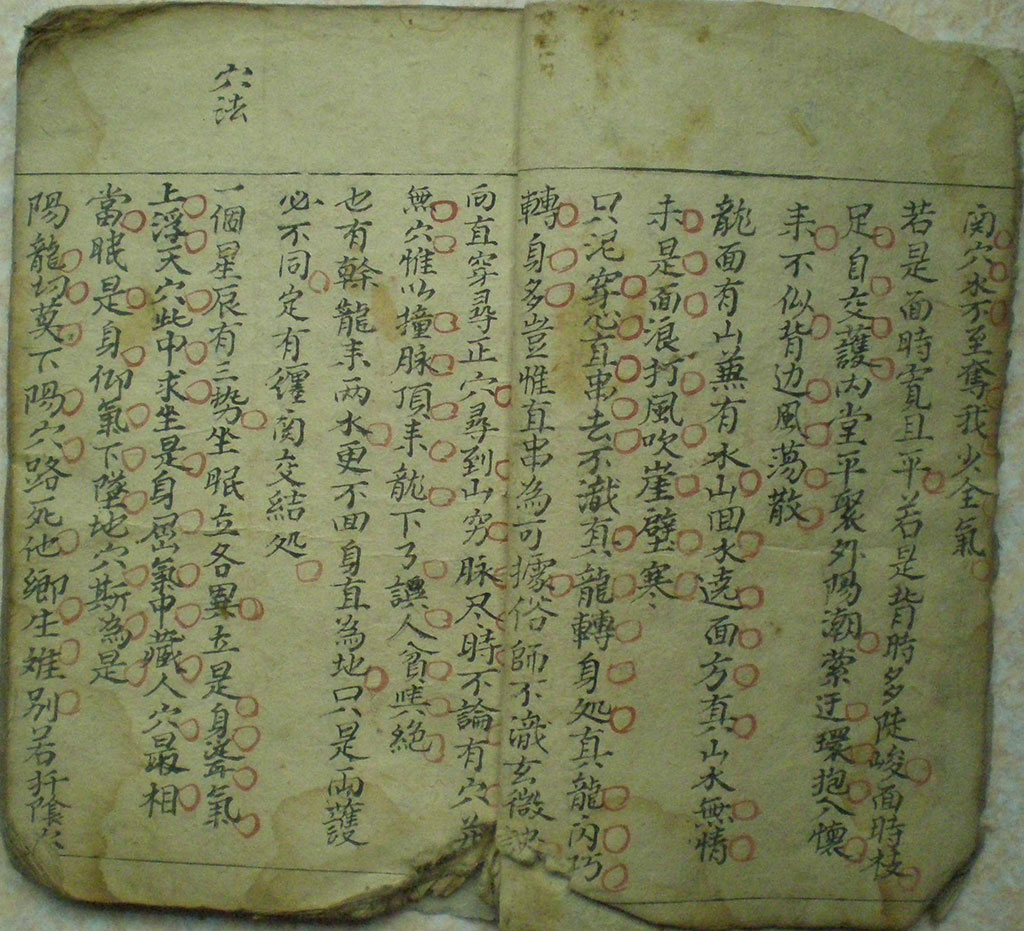 関穴水不至奪我少全氣
若是面時寛且平若是背時多陡峻面時枝
足自交護内堂平聚外陽潮萦迂環抱入懷
来不似背边風蕩散
龍面有山蕪有水山回水遶面方真山水無情
未是面浪打風吹崖壁寒
只泥穿心直串去不識真龍轉身処真龍内巧
轉身多豈惟直串為可據俗師不識玄微訣
向直穿尋正穴尋到山穷脉尽時不論有穴并
無穴惟以撞脉頂来龍下了誤人貧與絕
也有幹龍来两水更不回身直為地只是兩護
必不同定有纒関交結処
穴法
一個星辰有三势坐眠立各異立是身聳氣
上浮天穴此中求坐是身屈氣中藏人穴最相
當眠是身仰氣下墜地穴斯為是
陽龍切莫下陽穴路死他鄉生难别若扦陰穴